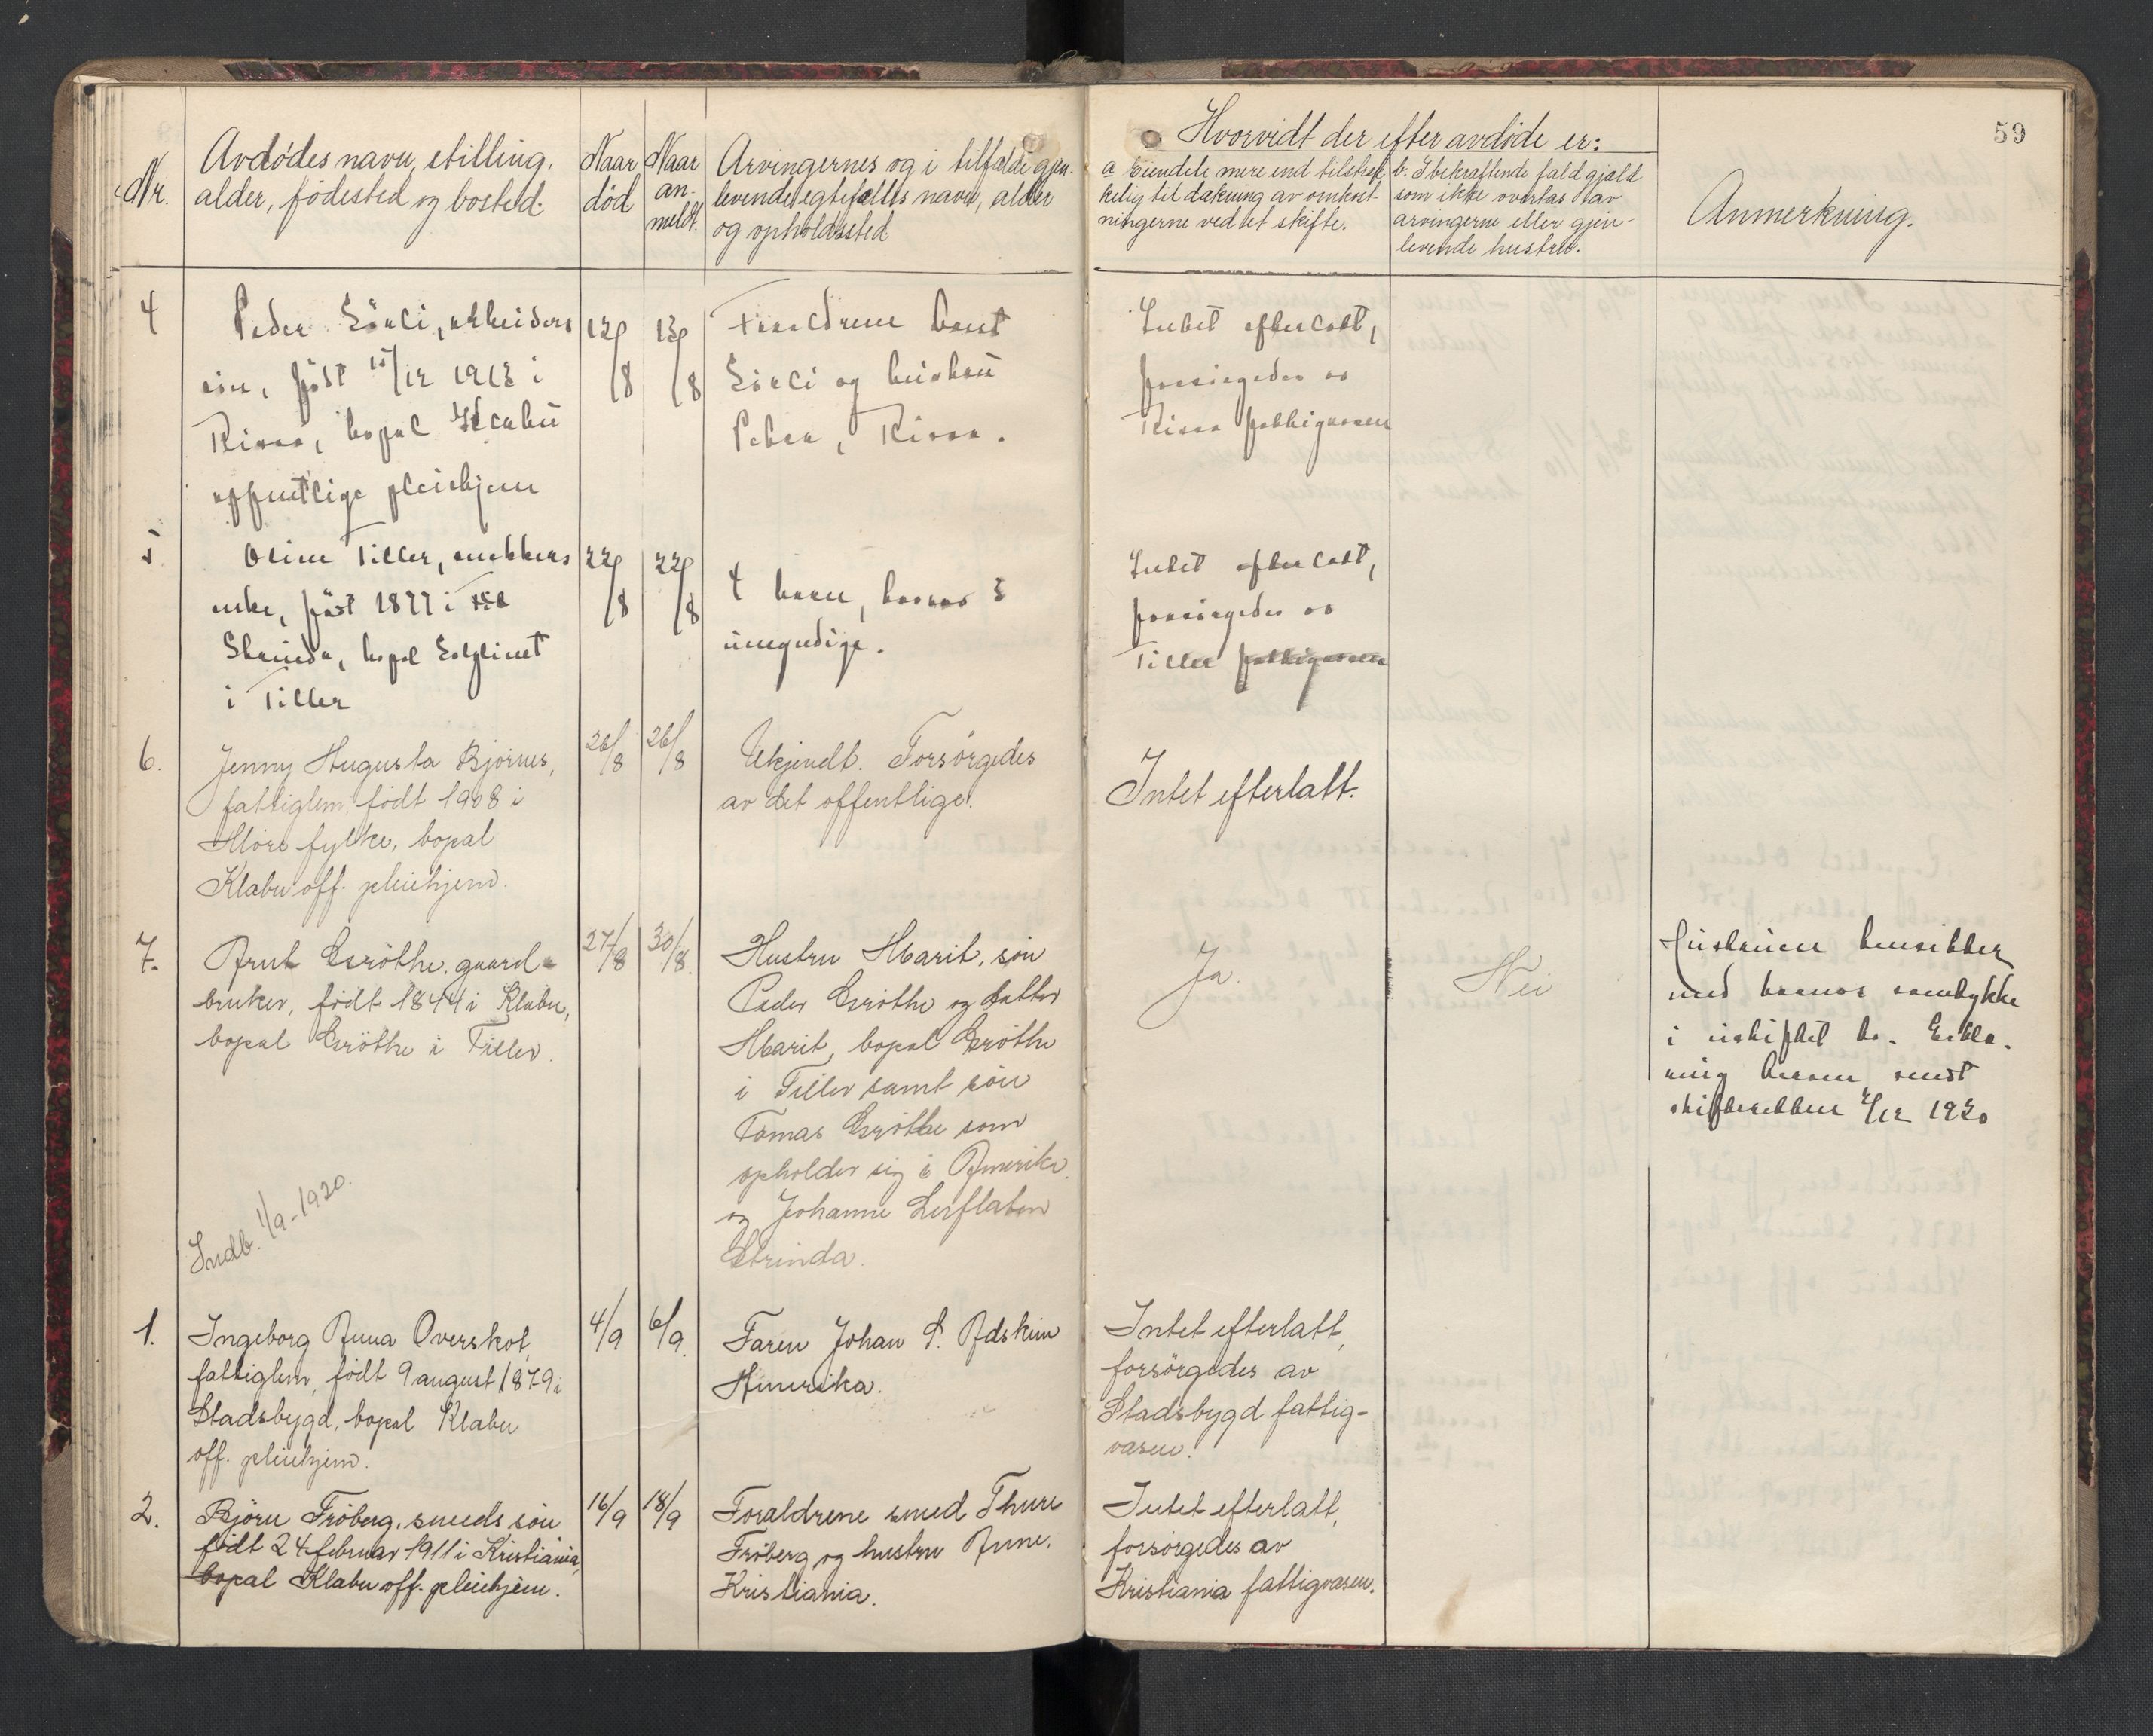 59
Nr.
Avdødes navn, stilling,
alder, fødested og bosted.
Naar
død
Naar
an-
meldt.
Arvingernes og i tilfælde gjen-
levende egtefælles navn, alder
og opholdssted
Hvorvidt der efter avdøde er:
a Eiendele mere end tilstræk
kelig til dækning av omkost-
ningerne ved et skifte.
b. I bekræftende fald gjæld
som ikke overtas av
arvingerne eller gjen-
levende hustru.
Anmerkning.
4
Peder, arbeiders
søn, født 15/12 1913 i
Rissa, bopæl Klæbu
offentlige pleiehjem
12/8
13/8
Forældrene Bernt
og hustru
Petra, Rissa.
Intet efterlatt,
forsørgedes av
Rissa fattigvæsen
5
Oline Tiller, snekkers
enke, født 1877 i
Strinda, bopæl
i Tiller
22/8
22/8
4 barn, hvorav 3
umyndige.
Intet efterlatt,
forsørgedes av
Tiller fattigvæsen
6.
Jenny Augusta Bjørnes,
fattiglem, født 1908 i
Møre fylke, bopæl
Klæbu off. pleiehjem.
26/8
26/8
Ukjendt. Forsørgedes
av det offentlige.
Intet efterlatt.
7.
Arnt Grøthe, gaard-
bruker, født 1844 i Klæbu,
bopæl Grøthe i Tiller.
27/8
30/8.
Hustru Marit, søn
Peder Grøthe og datter
Marit, bopæl Grøthe
i Tiller samt søn
Tomas Grøthe som
opholder sig i Amerika.
og Johanne Leirflaten
Strinda.
Ja.
Nei
Hustruen hensitter
med barnas samtykke
i uskiftet bo. Erklæ-
ring herom sendt
skifteretten 2/12 1920
Indb. 1/9-1920.
1.
Ingeborg Anna Overskot,
fattiglem, født 9 august 1879 i
Stadsbygd, bopæl Klæbu
off. pleiehjem.
4/9
6/9.
Faren Johan P. Adskim
Amerika.
Intet efterlatt,
forsørgedes av
Stadsbygd fattig-
væsen.
2.
Bjørn Frøberg, smeds søn
født 24 februar 1911 i Kristiania,
bopæl Klæbu off. pleiehjem.
16/9
18/9
Forældrene smed Thure
Frøberg og hustru Anne,
Kristiania.
Intet efterlatt,
forsørgedes av
Kristiania fattigvæsen.